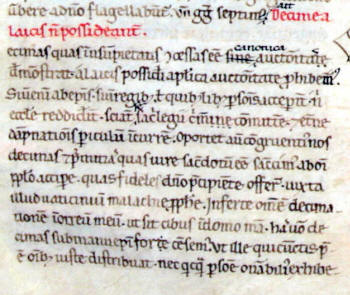 ubere a dño flagellabunt. Vñ Gg septimus. Decime a
laicis ñ possideantur.
ecimas quas in usum pietatis ɔcessas eē canonica auctoritas
demōstrat. a laicis possidi aplica auctoritate ꝓhibem'.
Siue enī ab epis. siue regib; ł quib;lib; psonis acceperint. ni
eccłe reddidint. sciant se sacłegii crimine cōmitte. 7 etne
dāpnationis piculum incurre. oportet autē congruentius nos
decimas 7 primitias quas iure sacdotum eē sancim' ab omi
pplo accipe. quas fideles dño pcipiente offerre. iuxta
illud uaticinium malachie pphe. Inferte omē decima
tionē ī orreum meū. ut sit cibus ī domo mea. has uo de
cimas sub manu epi fore cēsem'. ut ille qui ceteris p
ē oib; iuste distribuat. nec psone exhibe